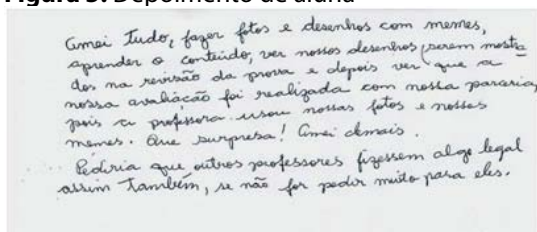 Figura 3. Depoimento de aluna
Amei tudo, fazer fotos e desenhos com memes,
aprender o conteúdo, ver nossos desenhos serem mostra
dos na revisão da prova e depois ver que a
nossa avaliação foi realizada com nossa parceria,
pois a professora usou nossas fotos e nossos
memes. Que surpresa! Amei demais.
Pediria que outros professores fizessem algo legal
assim também, se não for pedir muito para eles.